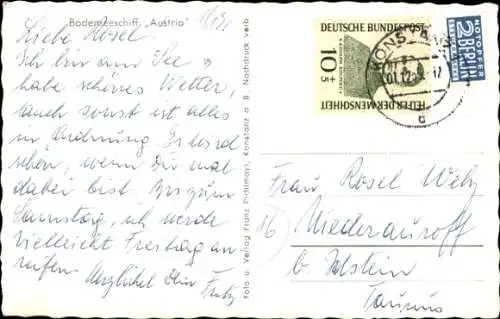 C. Bodenseeschiff „Austria"
Liebe Rosel
Ich bin am See u
habe schönes Wetter,
auch sonst ist alles
in Ordnung
sehen, wenn Du mal
dabei bist. Bis zum
Samstag, ich werde
vielleicht Freitag an-
rufen. Herzlichst Dein Fritz
Foto u. Verlag Franz Pichlmayr, Konstanz a. B. Nachdruck verb
DEUTSCHE BUNDESPOST
10+5
HELFER DER MENSCHHEIT
KONSTANZ
d
NOTOPFER
2 BERLIN
STEUERMARKE
Frau Rosel Welz
16 Niederauroff
b. Idstein
Taunus